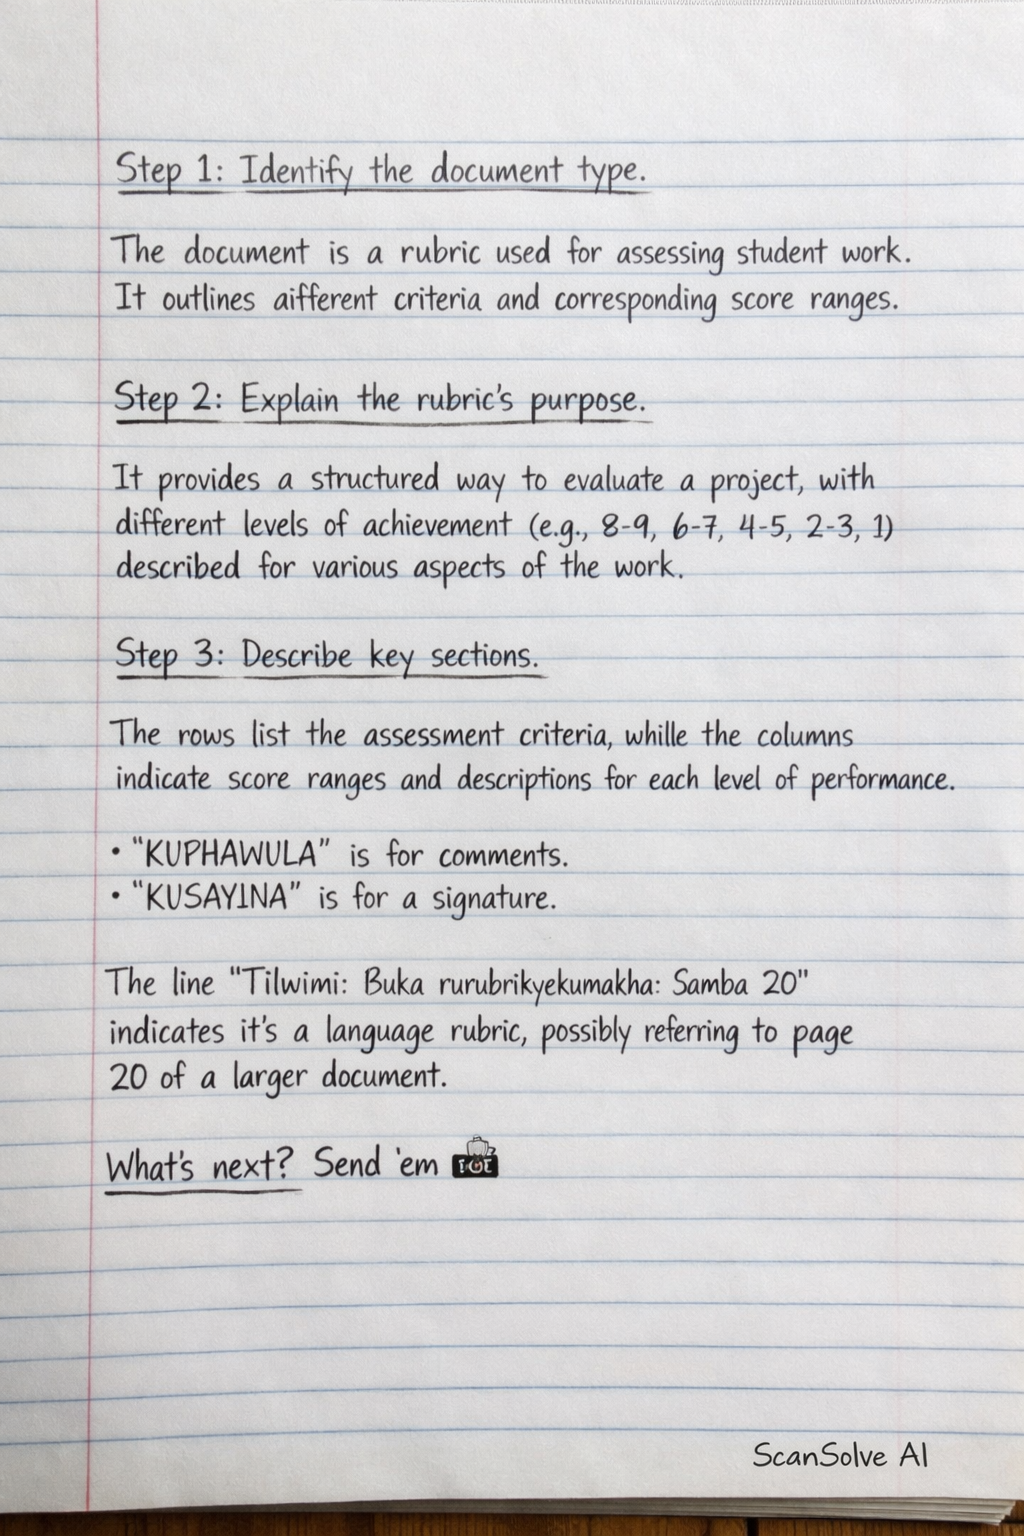 Step 1: Identify the document type.
The document is a rubric used for assessing student work.
It outlines aifferent criteria and corresponding score ranges.
Step 2: Explain the rubric's purpose.
It provides a structured way to evaluate a project, with
different levels of achievement (e.g., 8-9, 6-7, 4-5, 2-3, 1)
described for various aspects of the work.
Step 3: Describe key sections.
The rows list the assessment criteria, whille the columns
indicate score ranges and descriptions for each level of performance.
• "KUPHAWULA" is for comments.
• "KUSAYINA" is for a signature.
The line "Tilwimi: Buka rurubrikyekumakha: Samba 20"
indicates it's a language rubric, possibly referring to page
20 of a larger document.
What's next? Send 'em
ScanSolve AI